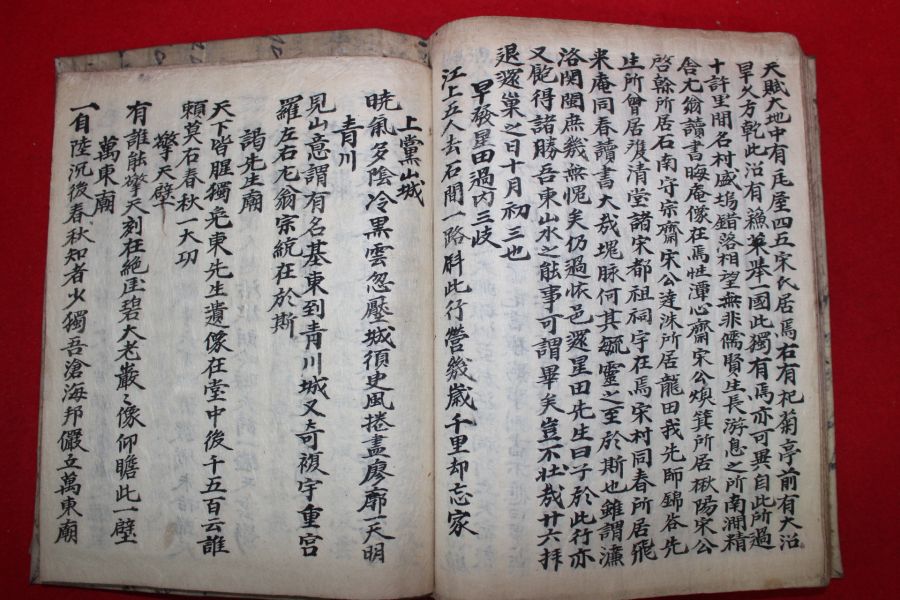 天賦大地中有瓦屋四五宋氏居焉右有杞菊亭前有大沼
旱火方乾此沼有漁策舉一國此獨有焉亦可異自此所過
十許里間名村盛塢錯落相望無非儒賢生長游息之所南澗精
舍尤翁讀書晦庵像在焉性潭心齋宋公煥箕所居楸陽宋公
啓幹所居石南守宗齋宋公達洙所居龍田我先師錦谷先
生所曾居雙清堂諸宋都祖祠宇在焉宋村同春所居飛
來庵同春讀書大哉塊脉何其毓靈之至於斯也雖謂濂
洛関閩庶幾無愧矣仍過懷邑還星田先生曰子於此行亦
又飽得諸勝吾東山水之能事可謂畢矣豈不壯哉廿六拜
退還巢之日十月初三也
早發星田過內三歧
江上五人去石間一路斜此行營幾歲千里却忘家
上黨山城
曉氣多陰冷黑雲忽壓城須臾風捲盡廖廓一天明
青川
見山意謂有名基東到青川城又奇複宇重宮
羅左右尤翁宗統在於斯
謁先生廟
天下皆腥獨免東先生遺像在堂中後千五百云誰
賴莫石春秋一大功
擎天壁
有誰能擎天刻在絶崖碧大老嚴嚴像仰瞻此一壁
萬東廟
一自陸沉後春秋知者少獨吾滄海邦儼立萬東廟